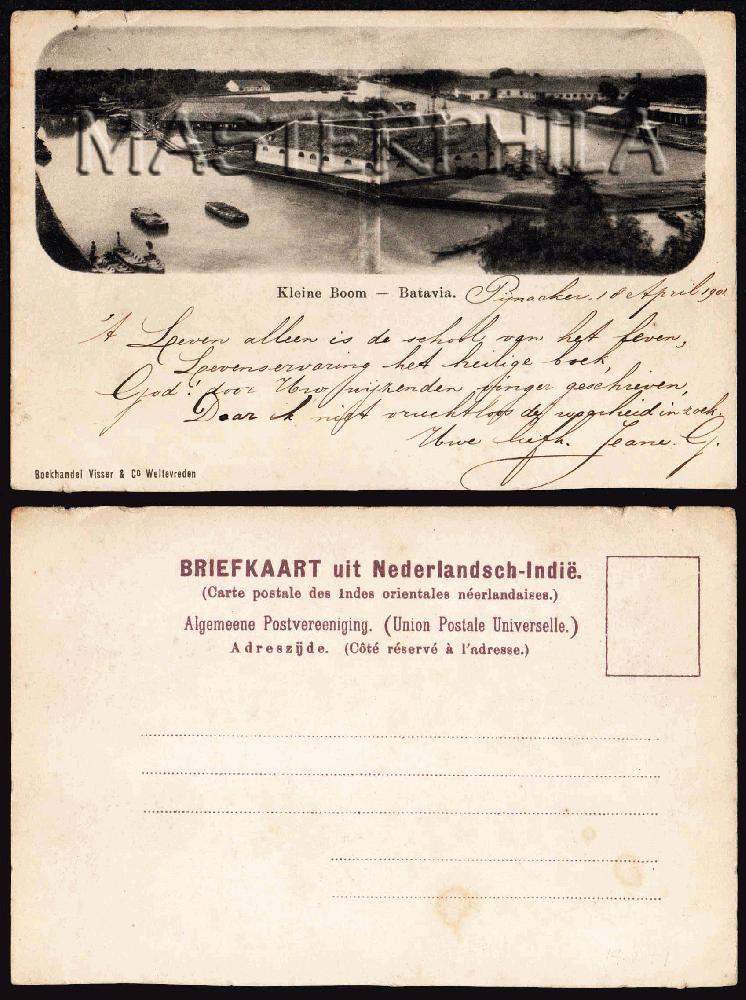 MASTERPHILA
Kleine Boom — Batavia. Pijnacker, 18 April 190
't Leven alleen is de school van het leven,
Levenservaring het heilige boek,
God! door Uw wijzenden vinger geschreven,
Daar ik niet vruchtloos de waarheid in zoek.
Uwe liefh. Jeane. G.
Boekhandel Visser & Co Weltevreden
BRIEFKAART uit Nederlandsch-Indië.
(Carte postale des Indes orientales néerlandaises.)
Algemeene Postvereeniging. (Union Postale Universelle.)
Adreszijde. (Côté réservé à l'adresse.)